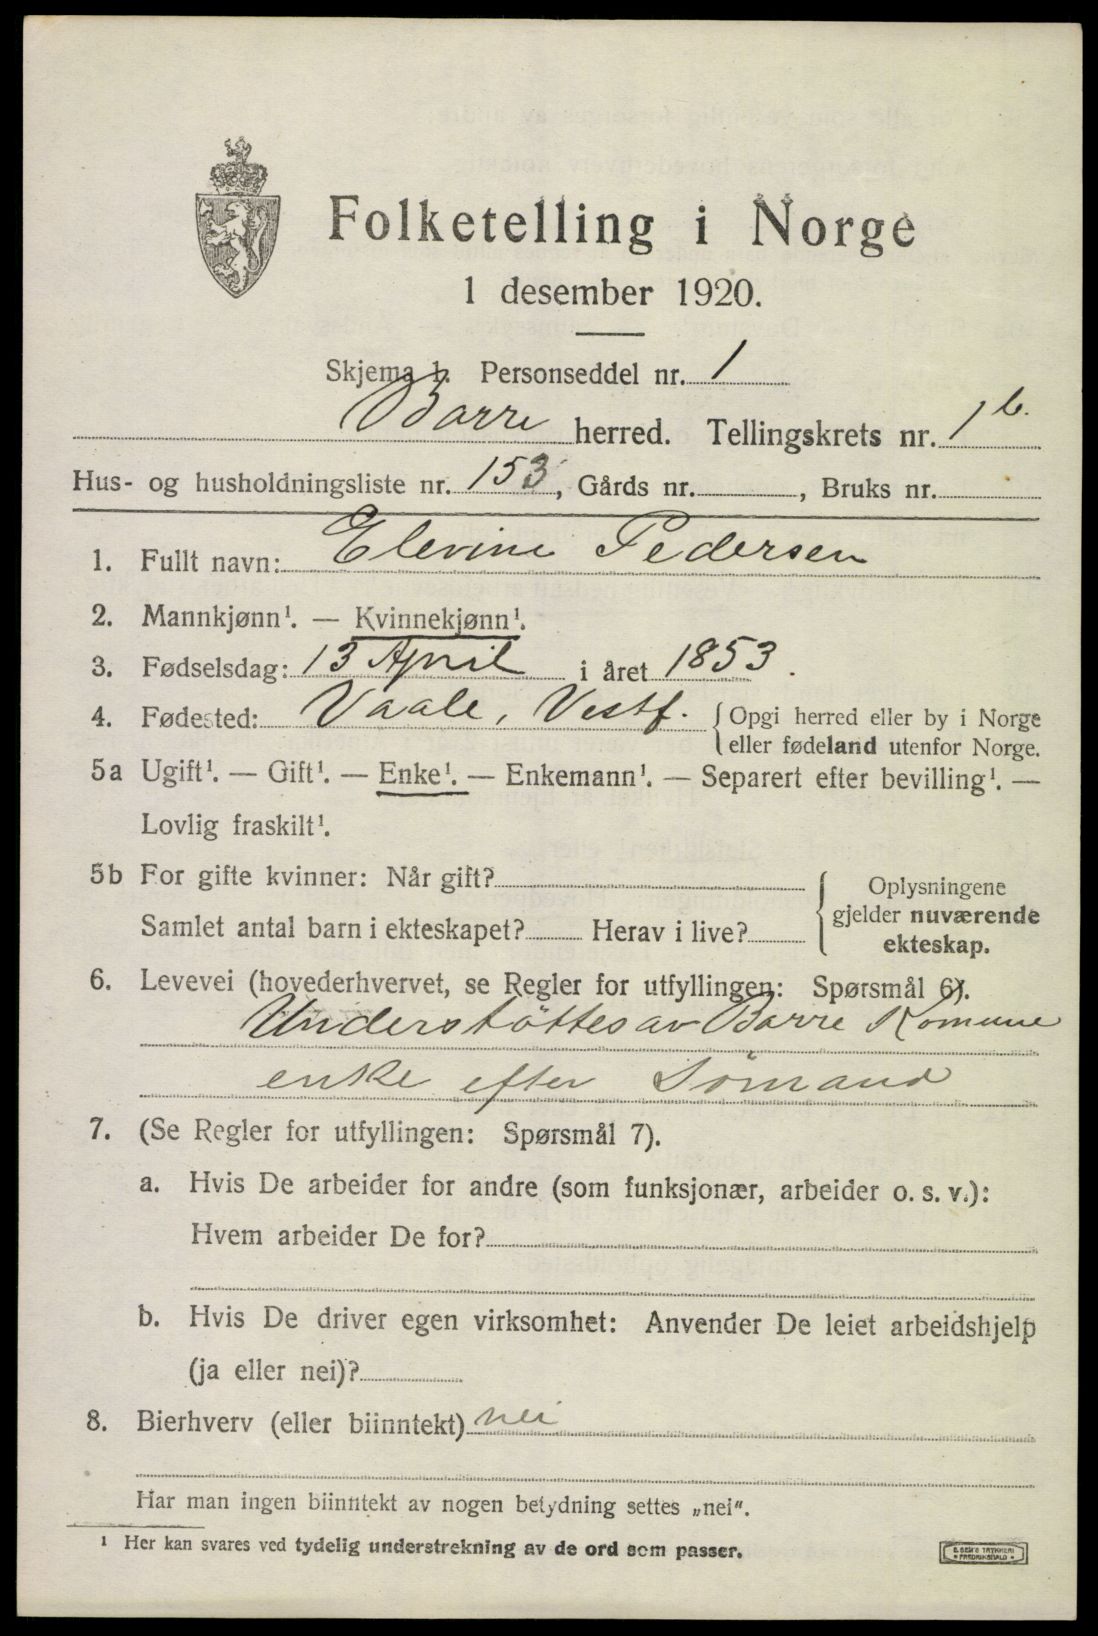 Folketelling i Norge
1 desember 1920.
Skjema 1. Personseddel nr. 1
Borre herred. Tellingskrets nr. 1 b.
Hus- og husholdningsliste nr. 153, Gårds nr. , Bruks nr.
1. Fullt navn: Elevine Pedersen
2. Mannkjønn¹. — Kvinnekjønn¹.
3. Fødselsdag: 13 April i året 1853.
4. Fødested: Vaale, Vestf. {Opgi herred eller by i Norge
eller fødeland utenfor Norge.
5a Ugift¹. — Gift¹. — Enke¹. — Enkemann¹. — Separert efter bevilling¹. —
Lovlig fraskilt¹.
5b For gifte kvinner: Når gift?
Samlet antal barn i ekteskapet? Herav i live?
{ Oplysningene
gjelder nuværende
ekteskap.
6. Levevei (hovederhvervet, se Regler for utfyllingen: Spørsmål 6).
Understöttes av Borre Komune
enke efter Sömand
7. (Se Regler for utfyllingen: Spørsmål 7).
a. Hvis De arbeider for andre (som funksjonær, arbeider o. s. v.):
Hvem arbeider De for?
b. Hvis De driver egen virksomhet: Anvender De leiet arbeidshjelp
(ja eller nei)?
8. Bierhverv (eller biinntekt) nei
Har man ingen biinntekt av nogen betydning settes „nei“.
¹ Her kan svares ved tydelig understrekning av de ord som passer.
E. SEM'S TRYKKERI
FREDRIKSHALD